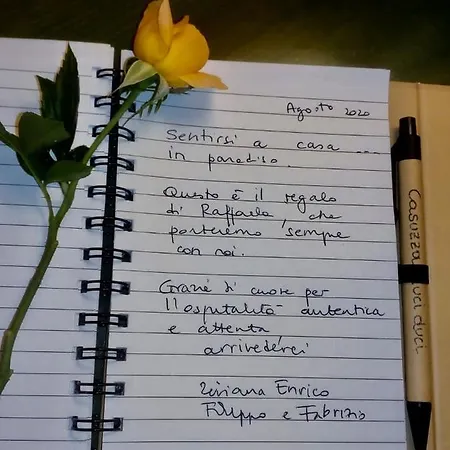 Agosto 2020
Sentirsi a casa ...
in paradiso.
Questo è il regalo
di Raffaela, che
porteremo sempre
con noi.
Grazie di cuore per
l'ospitalità autentica
e attenta
arrivederci
Viviana Enrico
Filippo e Fabrizio
Casuzza duci duci